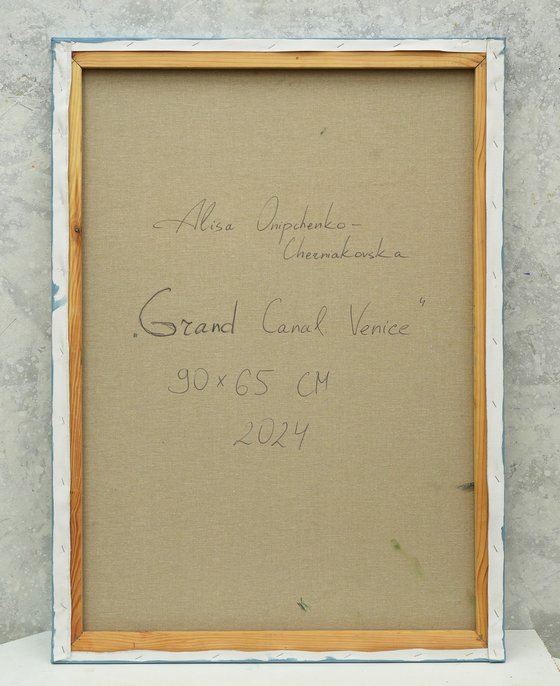 Alisa Onipchenko-
Chermakovska
„Grand Canal Venice“
90 x 65 CM
2024